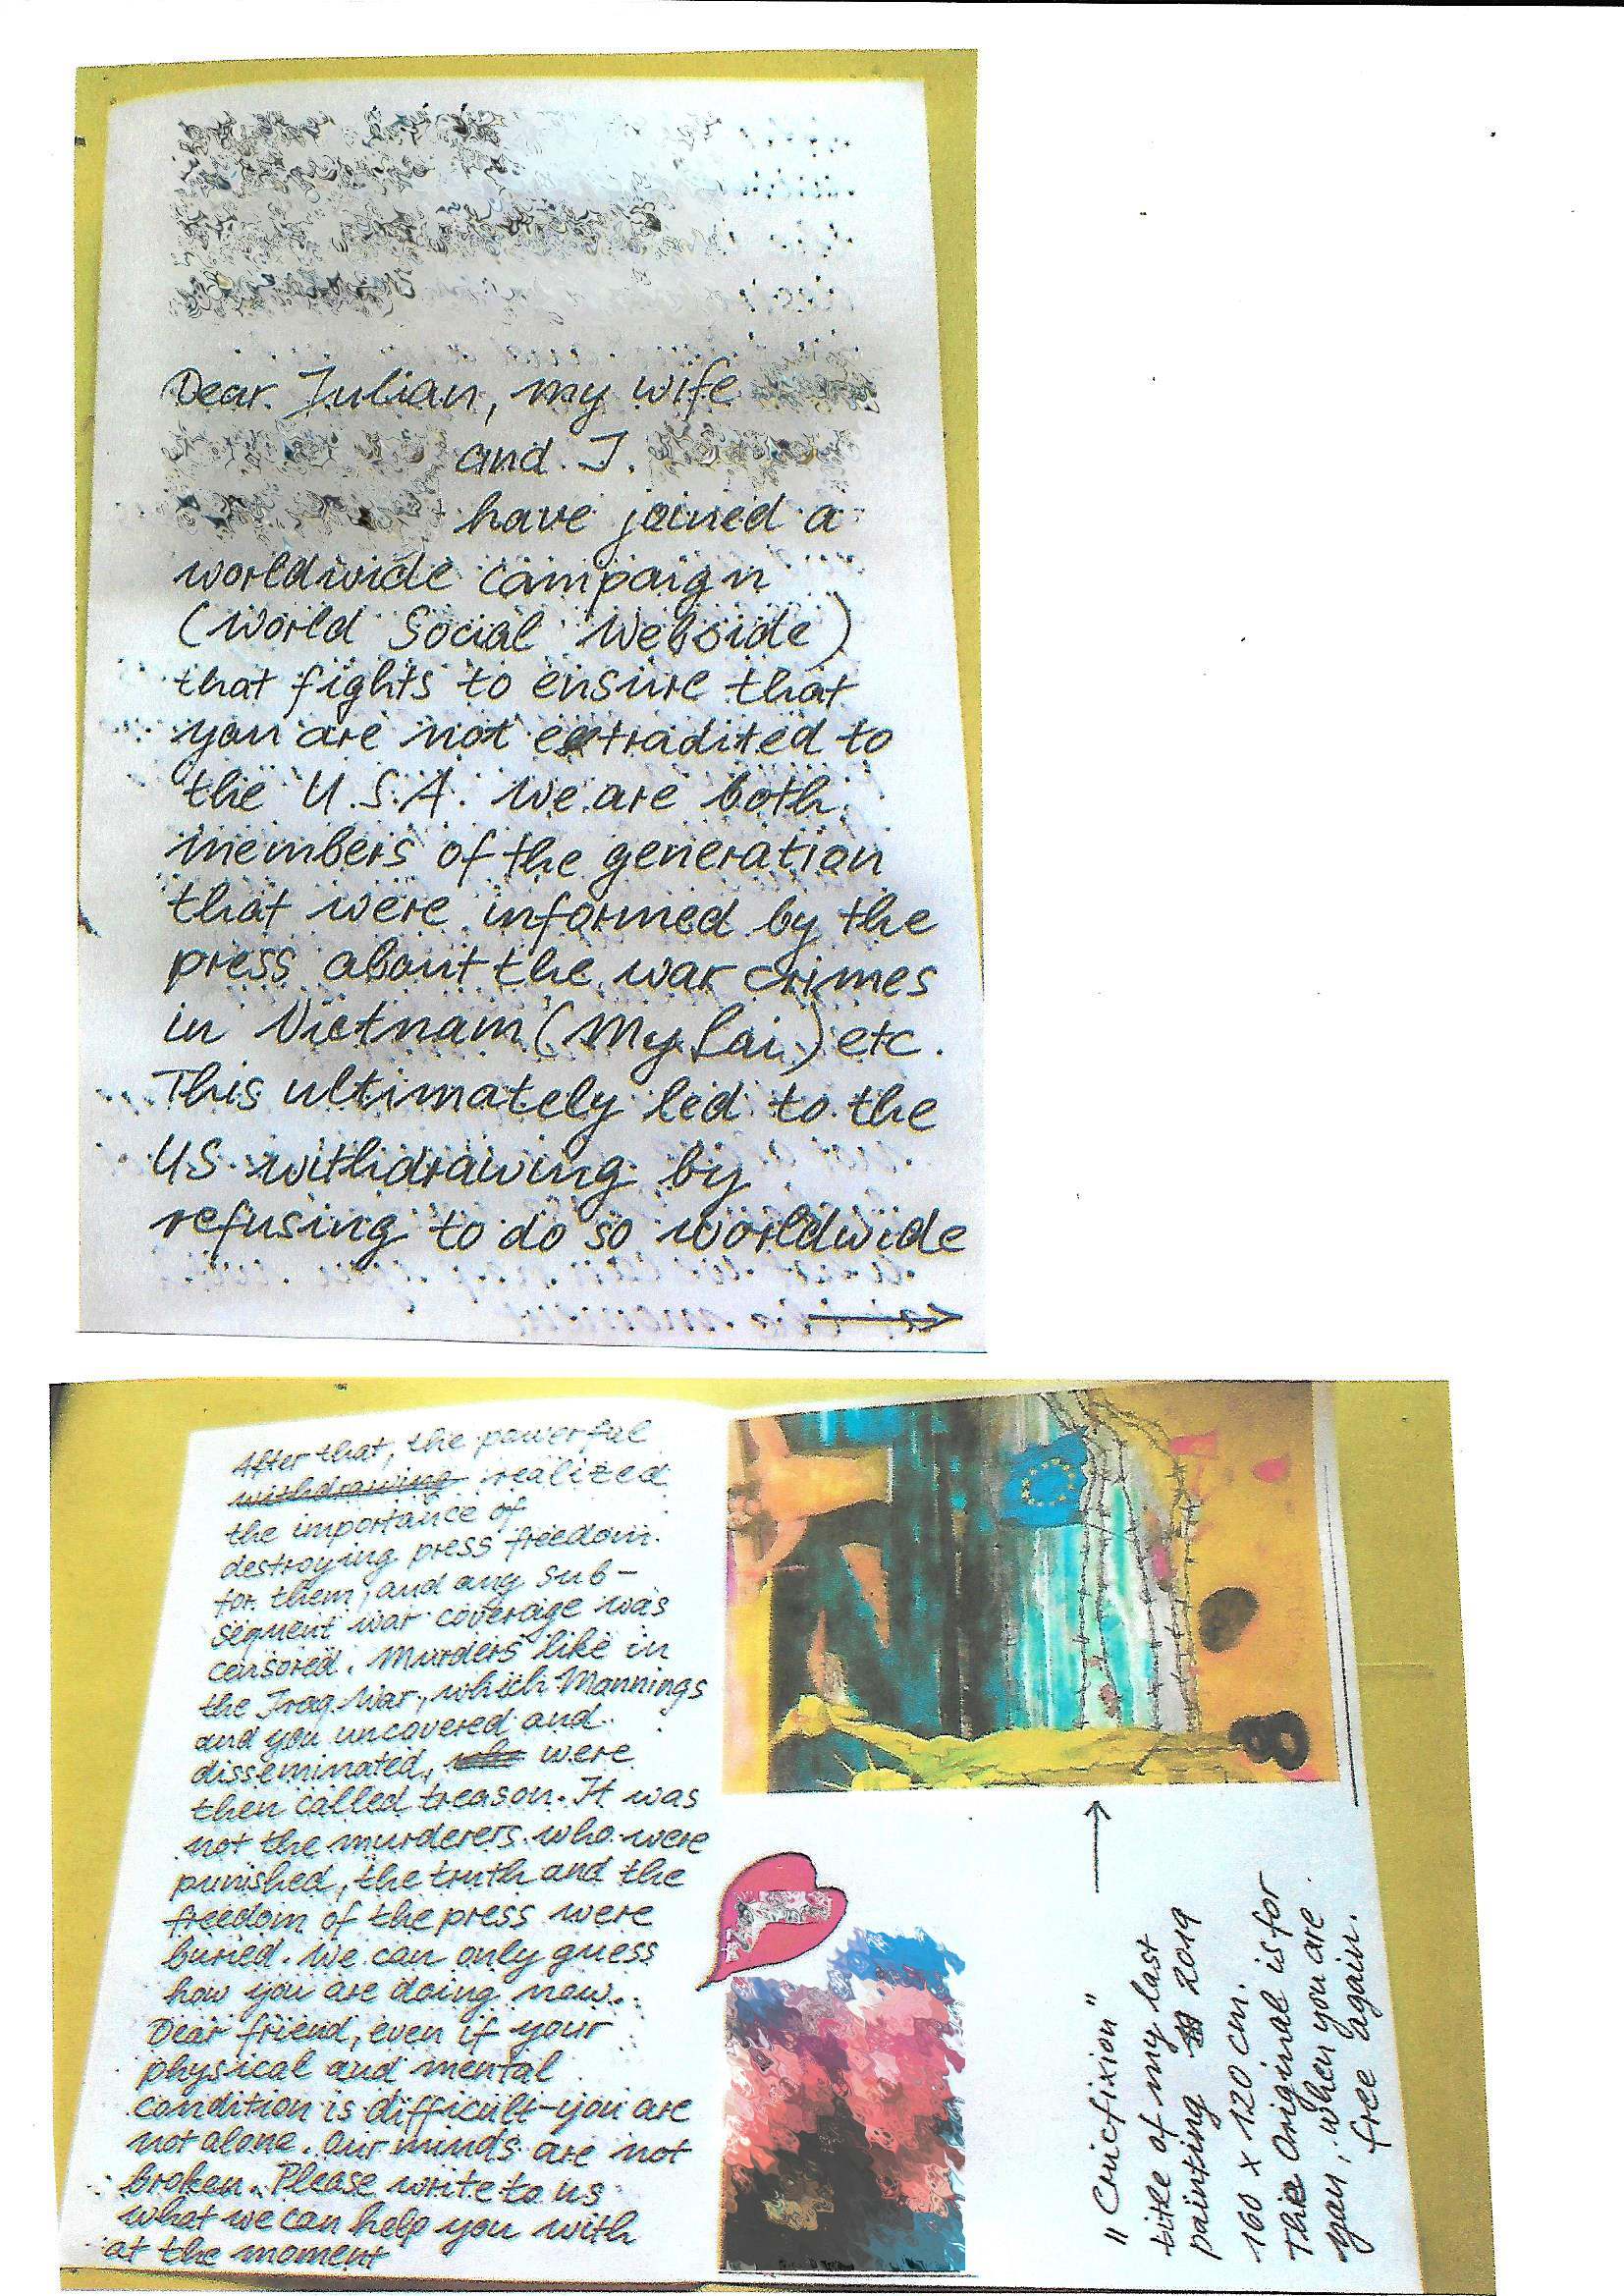 Dear Julian, my wife
and I.
have joined a
worldwide campaign
(World Social Webside)
that fights to ensure that
you are not extradited to
the U.S.A. We are both
members of the generation
that were informed by the
press about the war crimes
in Vietnam (My Lai) etc.
This ultimately led to the
US withdrawing by
refusing to do so worldwide
After that, the powerful
withdrawing realized
the importance of
destroying press freedom
for them, and any sub-
sequent war coverage was
censored. Murders like in
the Iraq War, which Mannings
and you uncovered and
disseminated, were
then called treason. It was
not the murderers who were
punished, the truth and the
freedom of the press were
buried. We can only guess
how you are doing now.
Dear friend, even if your
physical and mental
condition is difficult-you are
not alone. Our minds are not
broken. Please write to us
what we can help you with
at the moment
"Crucfixion"
title of my last
painting 2019
160 x 120 cm.
The Original is for
you, when you are
free again.